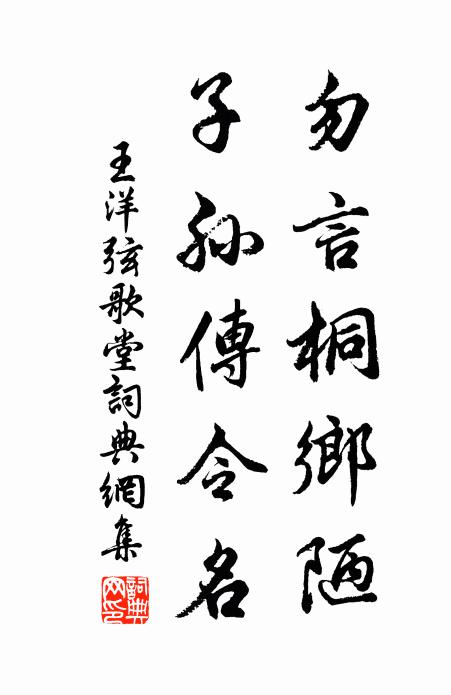 勿言桐鄉陋
子孫傳令名
王洋弦歌堂詞典網集
詞典网印